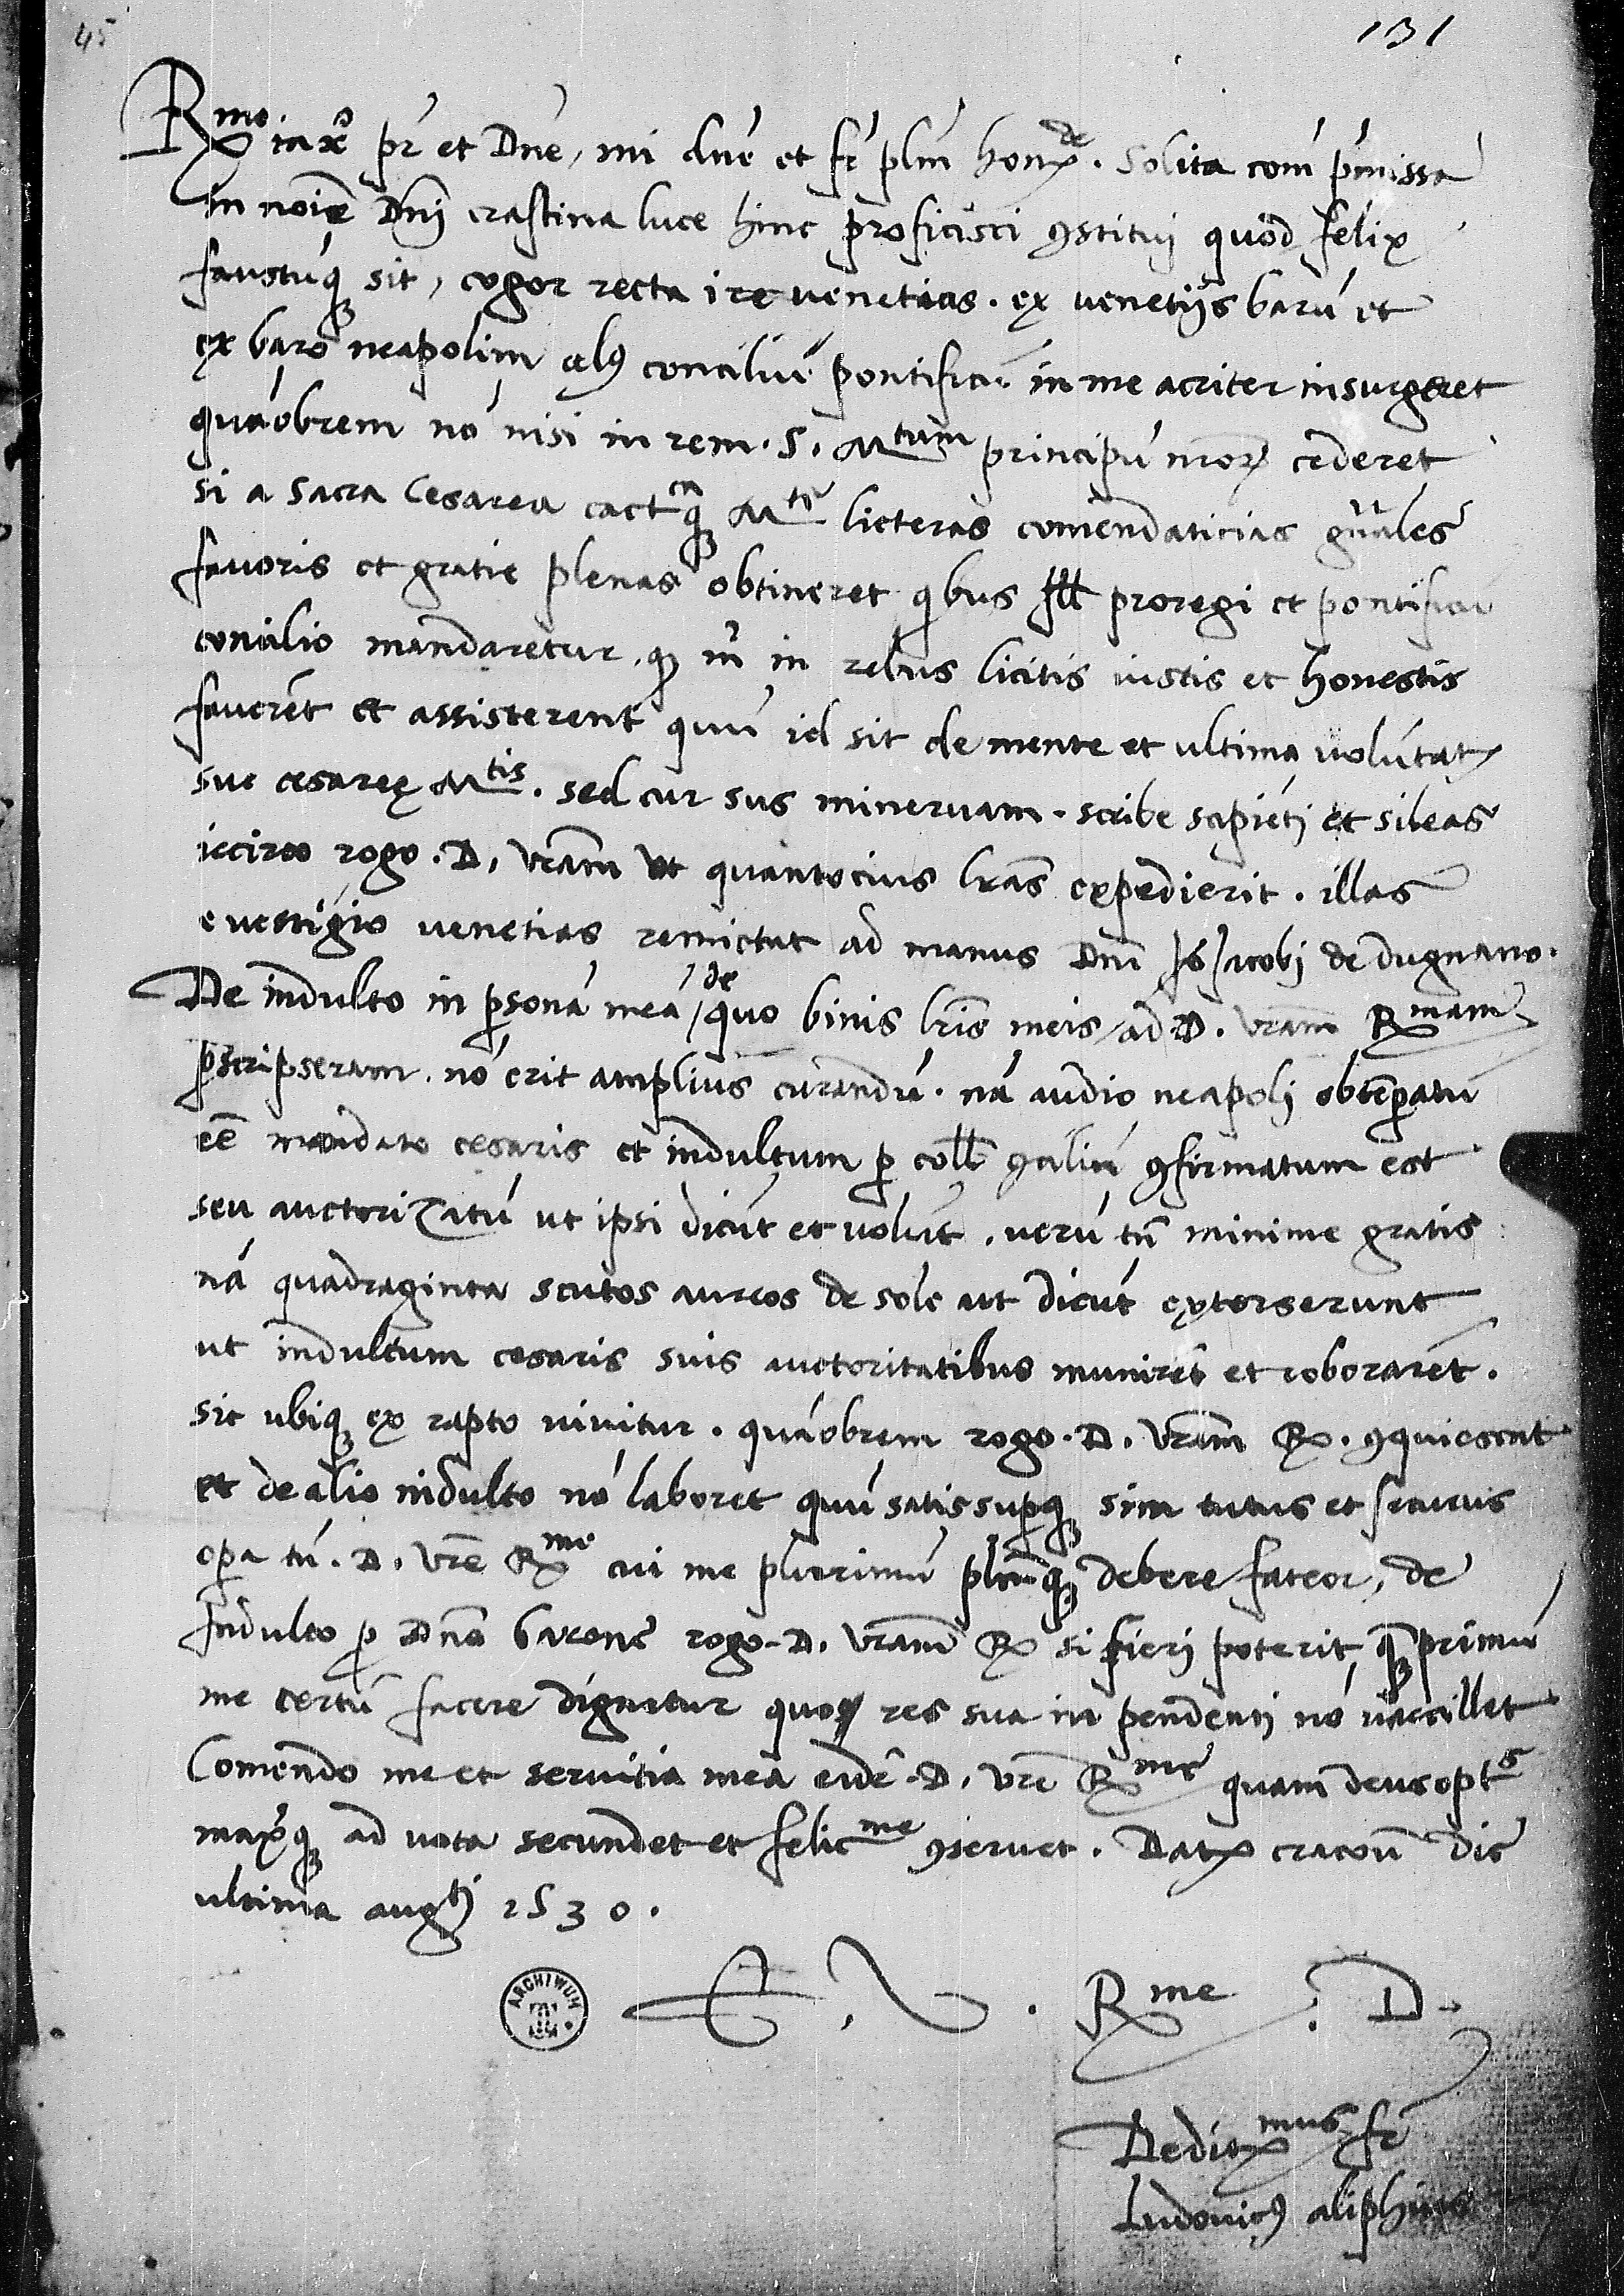 45
131
R^mo in χ̄o pr̄ et Dn̄e, mi dn̄e et fr̄ plm̄ hon^de. Solita com̄ p̄missa
in noīe Dnī crastina luce hinc proficisci ꝯstituj quod felix
faustūq; sit, cogor recta ire venetias. ex venetijs barū et
ex baro neapolim conciliū pontificiū in me acriter insurgeret
quāobrem nō nisi in rem. S. M^tum principū nr̄oꝝ cederet
si a sacra Cesarea cact^caq; M^te licteras comēdaticias gn̄ales
favoris et gratie plenas obtineret qbus Ill proregi et pontificio
consilio mandaretur, ꝙ m̄ in rebus licitis iustis et honestis
faverēt et assisterent quū id sit de mente et ultima volūtate
sue cesareę M^tis. sed cur sus minervam. scribe sapiētj et sileas
iccirco rogo. D. vr̄am ut quantocius lr̄as expedierit. illas
e vestigio venetias remictat ad manus Dnī Jo Jacobj de dugnano.
De indulto in p̱sonā meā / de quo binis lr̄is meis ad D. vr̄am R^mam
p̄scripseram. nō erit amplius curandū. nā audio neapolj obtēp̱atū
eē mandato cesaris et indultum p̱ coll̄ ꝯciliū ꝯfirmatum est
seu auctorizatū ut ipsi dicūt et volūt. verū tn̄ minime gratis
nā quadraginta scutos aureos de sole ut dicūt extorserunt
ut indultum cesaris suis auctoritatibus munirēt et roborarēt.
sic ubiq; ex rapto vivitur. quāobrem rogo. D. vr̄am R. ꝯquiescat
et de alio indulto nō laboret quū satis sup̱q; sim tutus et securus
op̱a tū. D. vr̄e R^me cui me plurimū plim̄q; debere fateor, de
Indulto ꝓ Dn̄o barone rogo. D. vr̄am R si fierj poterit q̄ primū
me certū facere dignetur quo res sua in pendentj nō vaccillet
Comendo me et servitia mea eidē. D. vr̄e R^me quam deus opt^s
maxq; ad vota secundet et felic^me ꝯservet. Dat cracoū die
ultima aug^tj 1530.
E. V. R^me. D.
Dedit^mus fr̄
Ludovicꝰ aliphius
ARCHIWUM